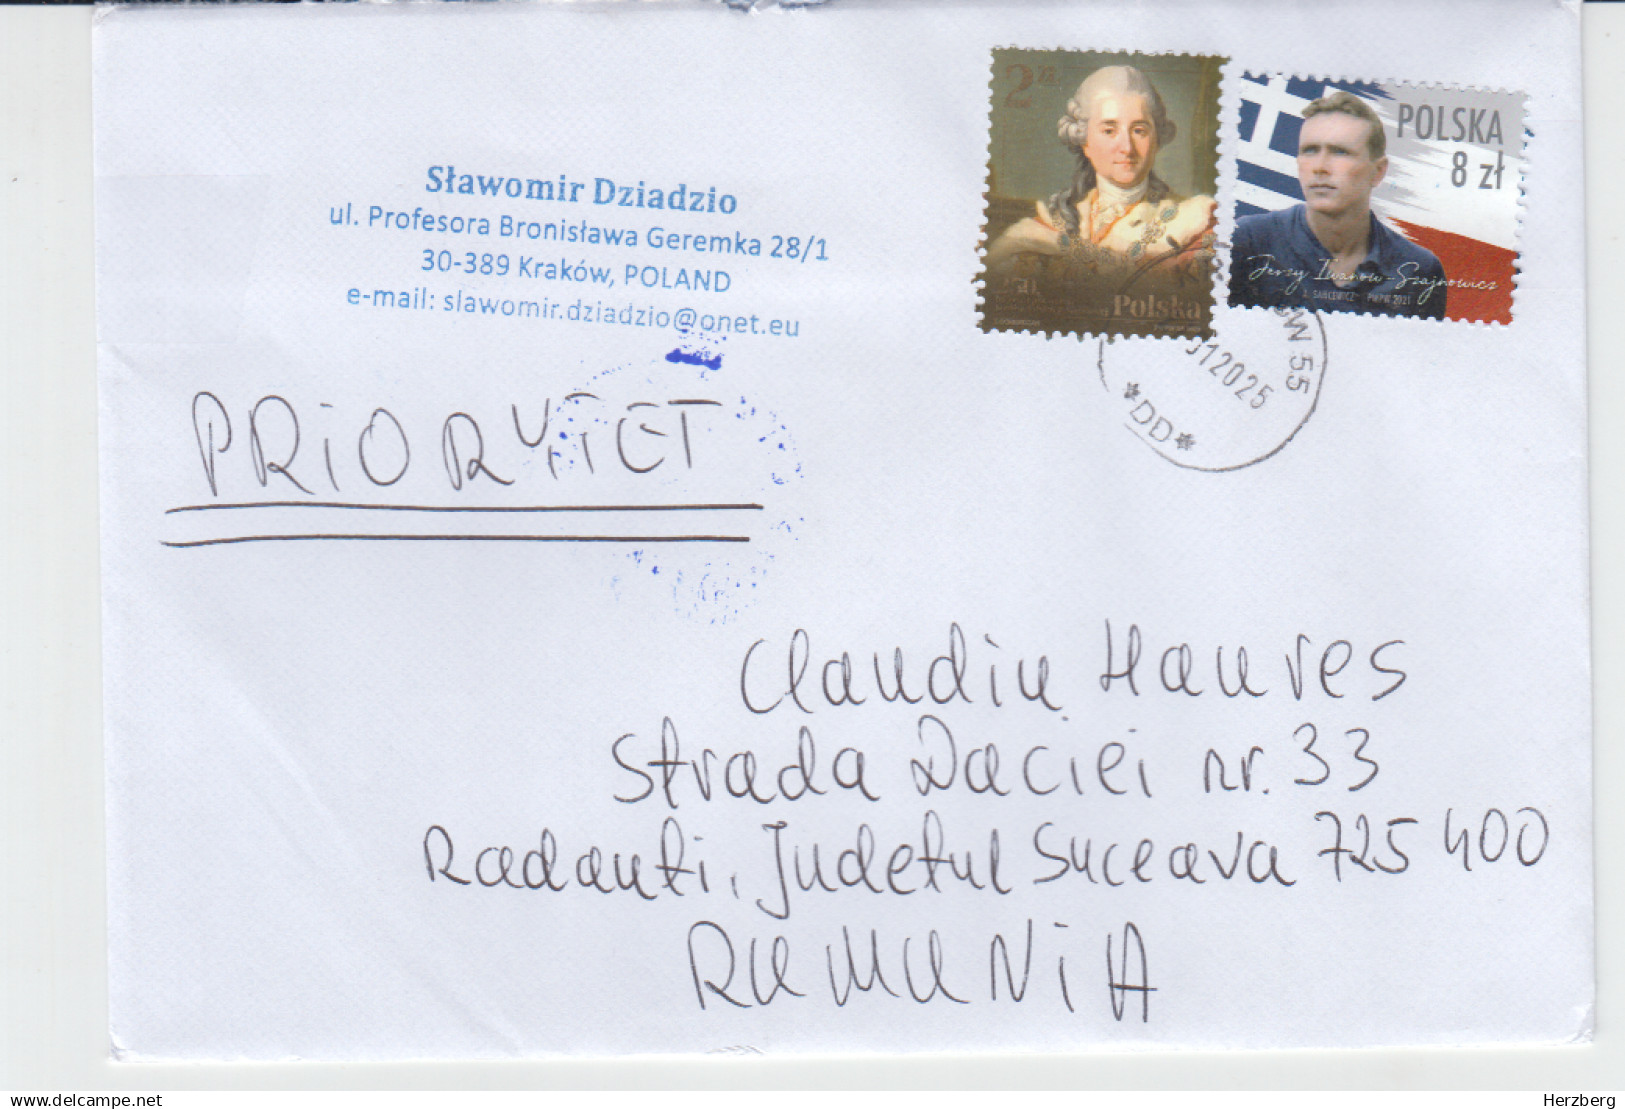 Sławomir Dziadzio
ul. Profesora Bronisława Geremka 28/1
30-389 Kraków, POLAND
e-mail: slawomir.dziadzio@onet.eu
PRIORYTET
2 ZŁ
Polska
POLSKA
8 zł
Jerzy Iwanow-Szajnowicz
PWPW 2021
W 55
012025
*DD*
Claudiu Haures
Strada Daciei nr. 33
Radauti, Judetul Suceava 725 400
RUMUNiA
delcampe.net
Herzberg